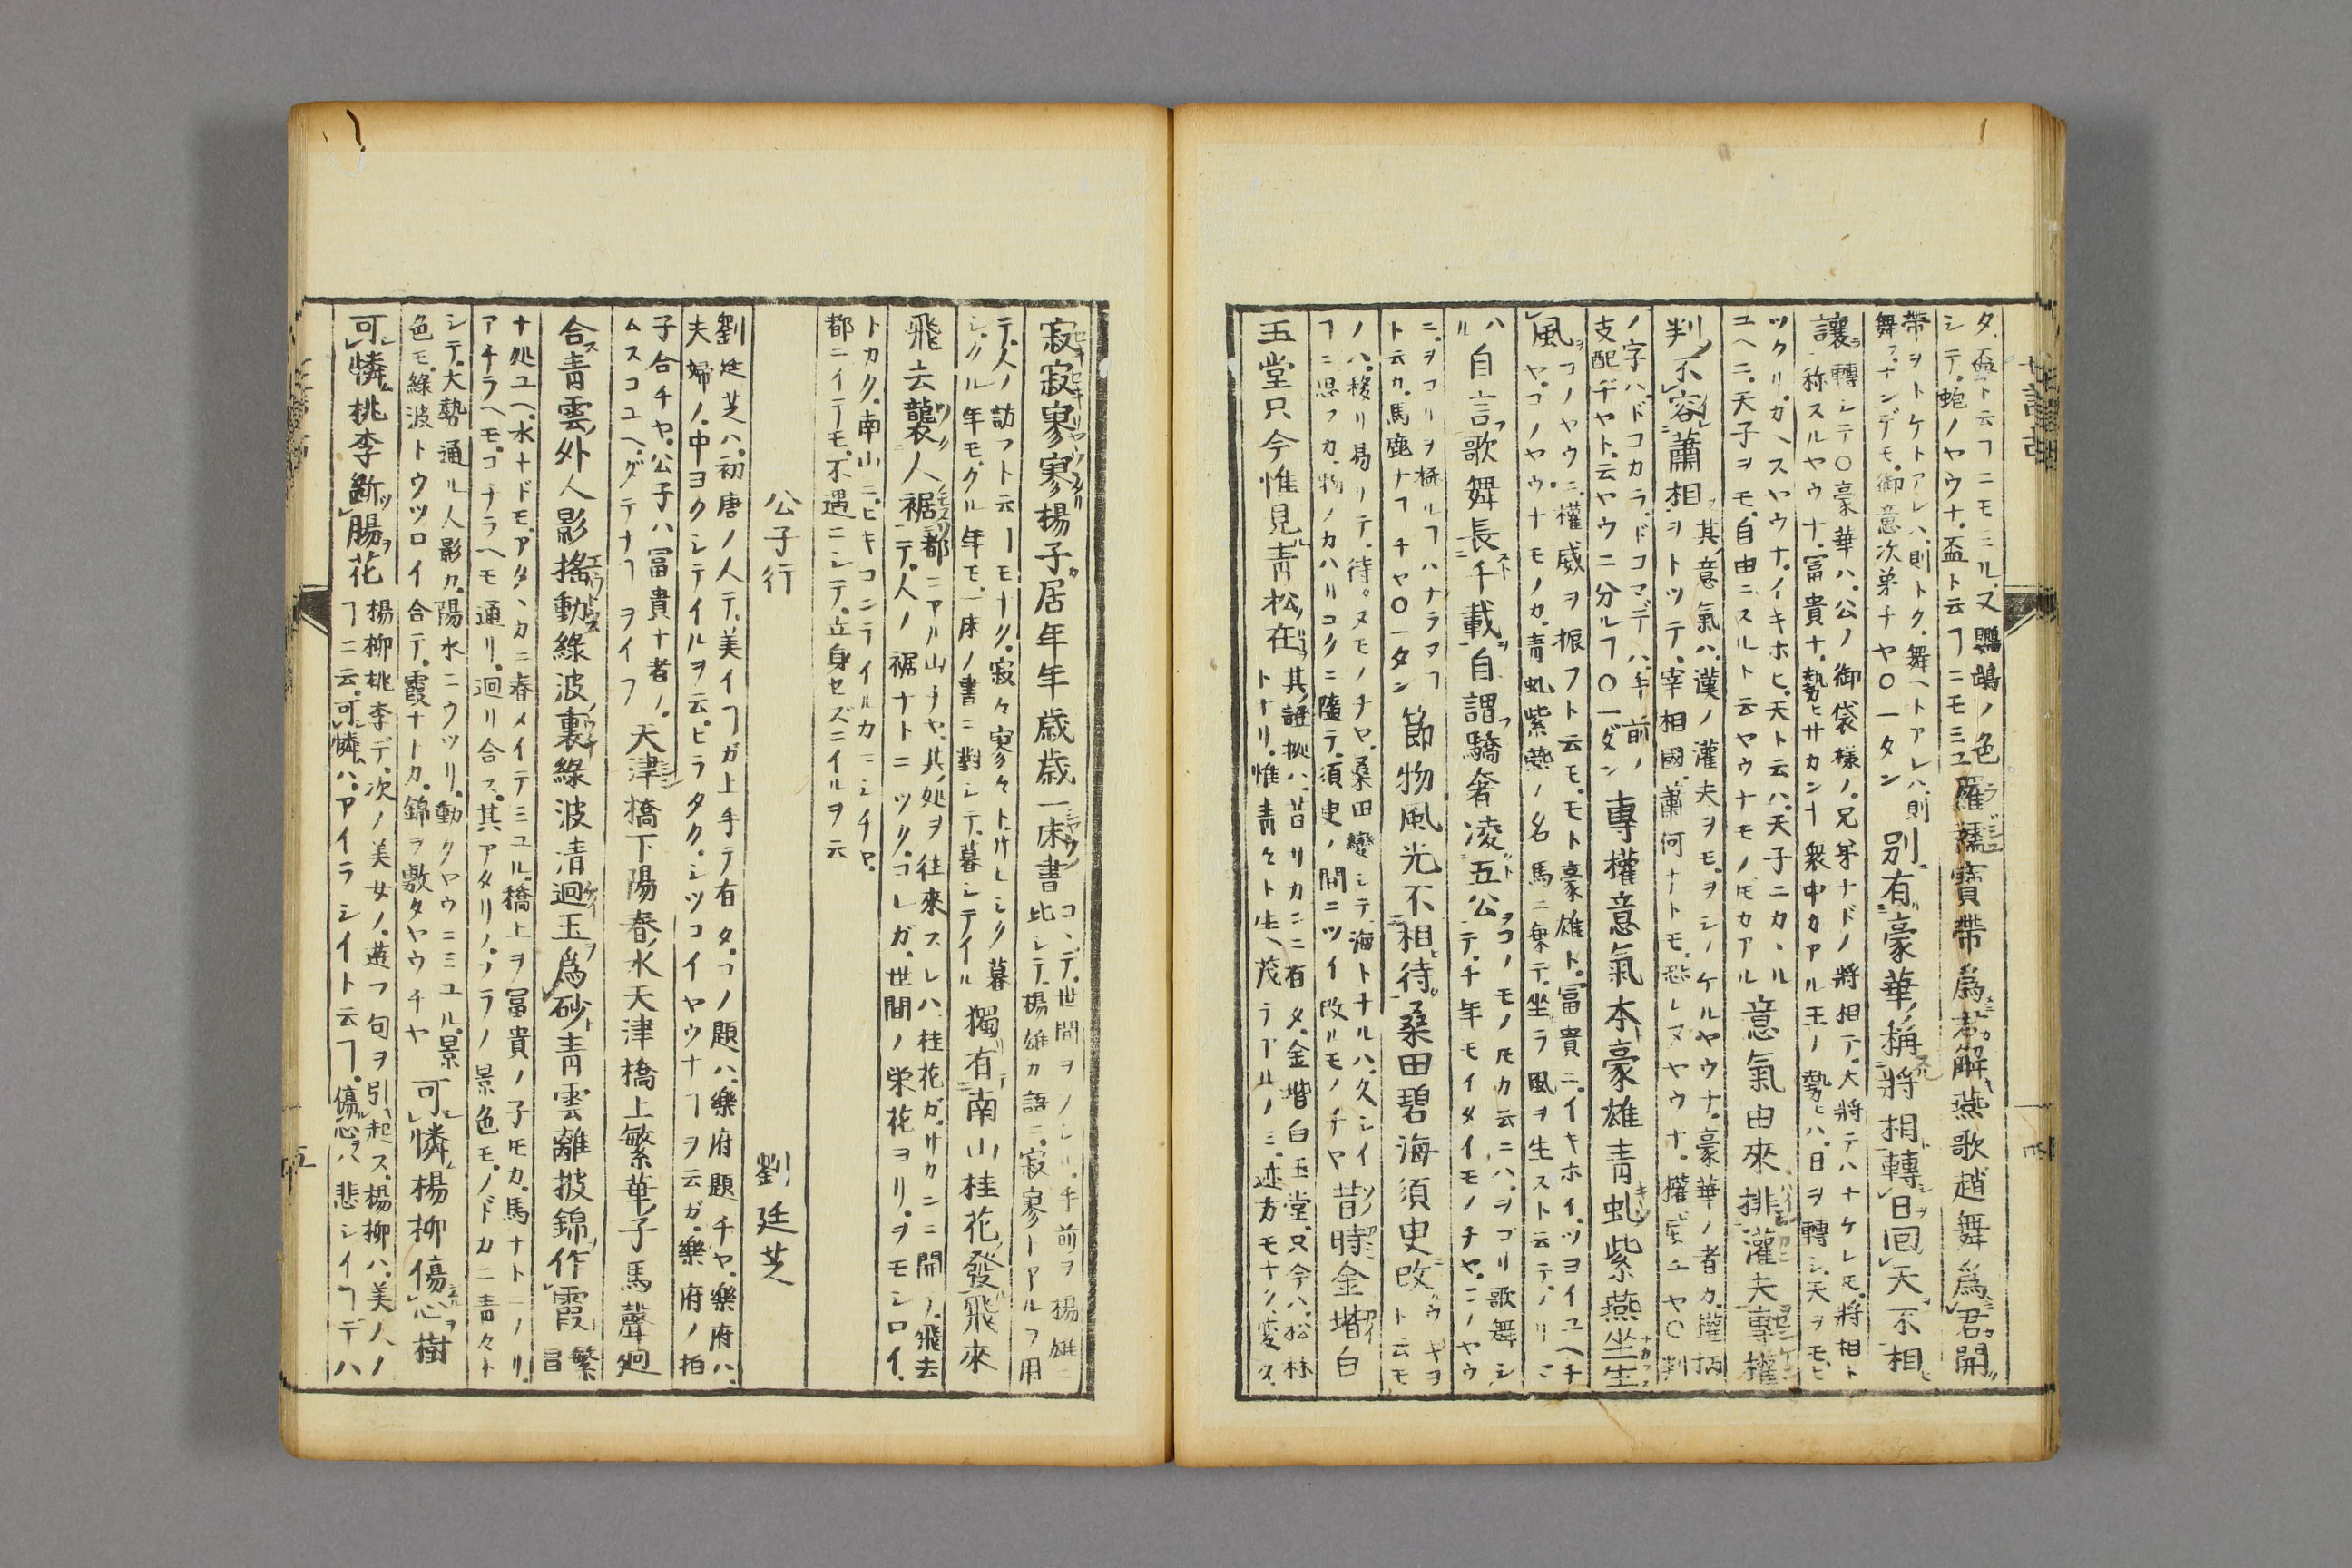 タ盃ト云フニモミル又鸚鵡ノ色
シテ蛇ノヤウナ盃ト云フニモミユ
羅襦寶帶爲君解燕歌趙舞爲君開
帶ヲトケトアレハ則トク舞ヘトアレハ則
舞フナンデモ御意次第チヤ〇一タン
別有豪華稱將相轉日回天不相
讓
轉シテ〇豪華ハ公ノ御袋様ノ兄弟ナドノ將相テ大將テハナケレ𪜈將相ト
称スルヤウナ冨貴ナ勢ヒサカンナ衆中カアル王ノ勢ヒハ日ヲ轉シ天ヲモヒ
ツクリガヘスヤウナイキホヒ天ト云ハ天子ニカヽル
ユヘニ天子ヲモ自由ニスルト云ヤウナモノ𪜈カアル
意氣由來排灌夫專權
判不容蕭相
其意氣ハ漢ノ灌夫ヲモヲシノケルヤウナ豪華ノ者カ權柄
ヲトツテ宰相國蕭何ナトモ恐レヌヤウナ權威チヤ〇判
ノ字ハドコカラドコマデハ手前ノ
支配ヂヤト云ヤウニ分ルフ〇一ダン
專權意氣本豪雄青虬紫燕坐生
風
コノヤウニ權威ヲ振フト云モモト豪雄ト冨貴ニイキホイツヨイユヘチ
ヤコノヤウナモノカ青虬紫燕ノ名馬ニ乗テ坐ラ風ヲ生スト云テノリニ
ハ
ル
自言歌舞長千載自謂驕奢凌五公
コノモノ𪜈カ云ニハヲコリ歌舞シ
テ千年モイタイモノチヤニノヤウ
ニヲコリヲ極ルフハナラヌフ
ト云カ馬鹿ナフチヤ〇一タン
節物風光不相待桑田碧海須史改
ウヤヲ
ト云モ
ノハ移リ易リテ待ヌモノチヤ桑田變シテ海トナルハ久シイ
フニ思フカ物ノカハリコクニ隨テ須史ノ間ニツイ改ルモノチヤ
昔時金堦白
玉堂只今惟見青松在
其證拠ハ昔リカニニ有タ金堦白玉堂只今ハ松林
トナリ惟青々ト生茂ラアルノミ迹方モナク変タ
寂寂寥寥揚子居年年歳歳一床書
コヽデ世間ヲノシル手前ヲ揚雄ニ
比シテ揚雄カ語ニ寂寥トアルヲ用
テ人ノ訪フト云フモナク寂々寥々トサヒシク暮
シクル年モクル年モ一床ノ書ニ對シテ暮シテイル
獨有南山桂花發飛來
飛去襲人裾
都ニアル山チヤ其処ヲ往來スレハ桂花ガサカニニ開テ飛去
テ人ノ裾ナトニツクコレガ世間ノ栄花ヨリヲモシロイ
トカク南山ニヒキコンテイルカマシチヤ
都ニイテモ不遇ニシテ立身セズニイルヲ云
公子行 劉廷芝
劉廷芝ハ初唐ノ人テ美イフガ上手テ有タコノ題ハ樂府題チヤ樂府ハ
夫婦ノ中ヨクシテイルヲ云ヒラタクシツコイヤウナフヲ云ガ樂府ノ拍
子合チヤ公子ハ冨貴ナ者ノ
ムスコユヘダテナフヲイフ
天津橋下陽春水天津橋上繁華子馬聲廻
合青雲外人影搖動綠波裏綠波清迴玉爲砂青雲離披錦作霞
繁
昌
ナ処ユヘ水ナドモアタヽカニ春メイテミユル橋上ヲ冨貴ノ子𪜈カ馬ナトニノリ
アチラヘモコチラヘモ通リ迴リ合ス其アタリノソラノ景色モノドカニ青々ト
シテ大勢通ル人影カ陽水ニウツリ動クヤウニミユル景
色モ綠波トウツロイ合テ霞ナトカ錦ヲ敷タヤウチヤ
可憐楊柳傷心樹
可憐桃李斷腸花
楊柳桃李デ次ノ美女ノ遊フ句ヲ引起ス楊柳ハ美人ノ
フニ云可憐ハアイラシイト云フ傷心ハ悲シイフデハ